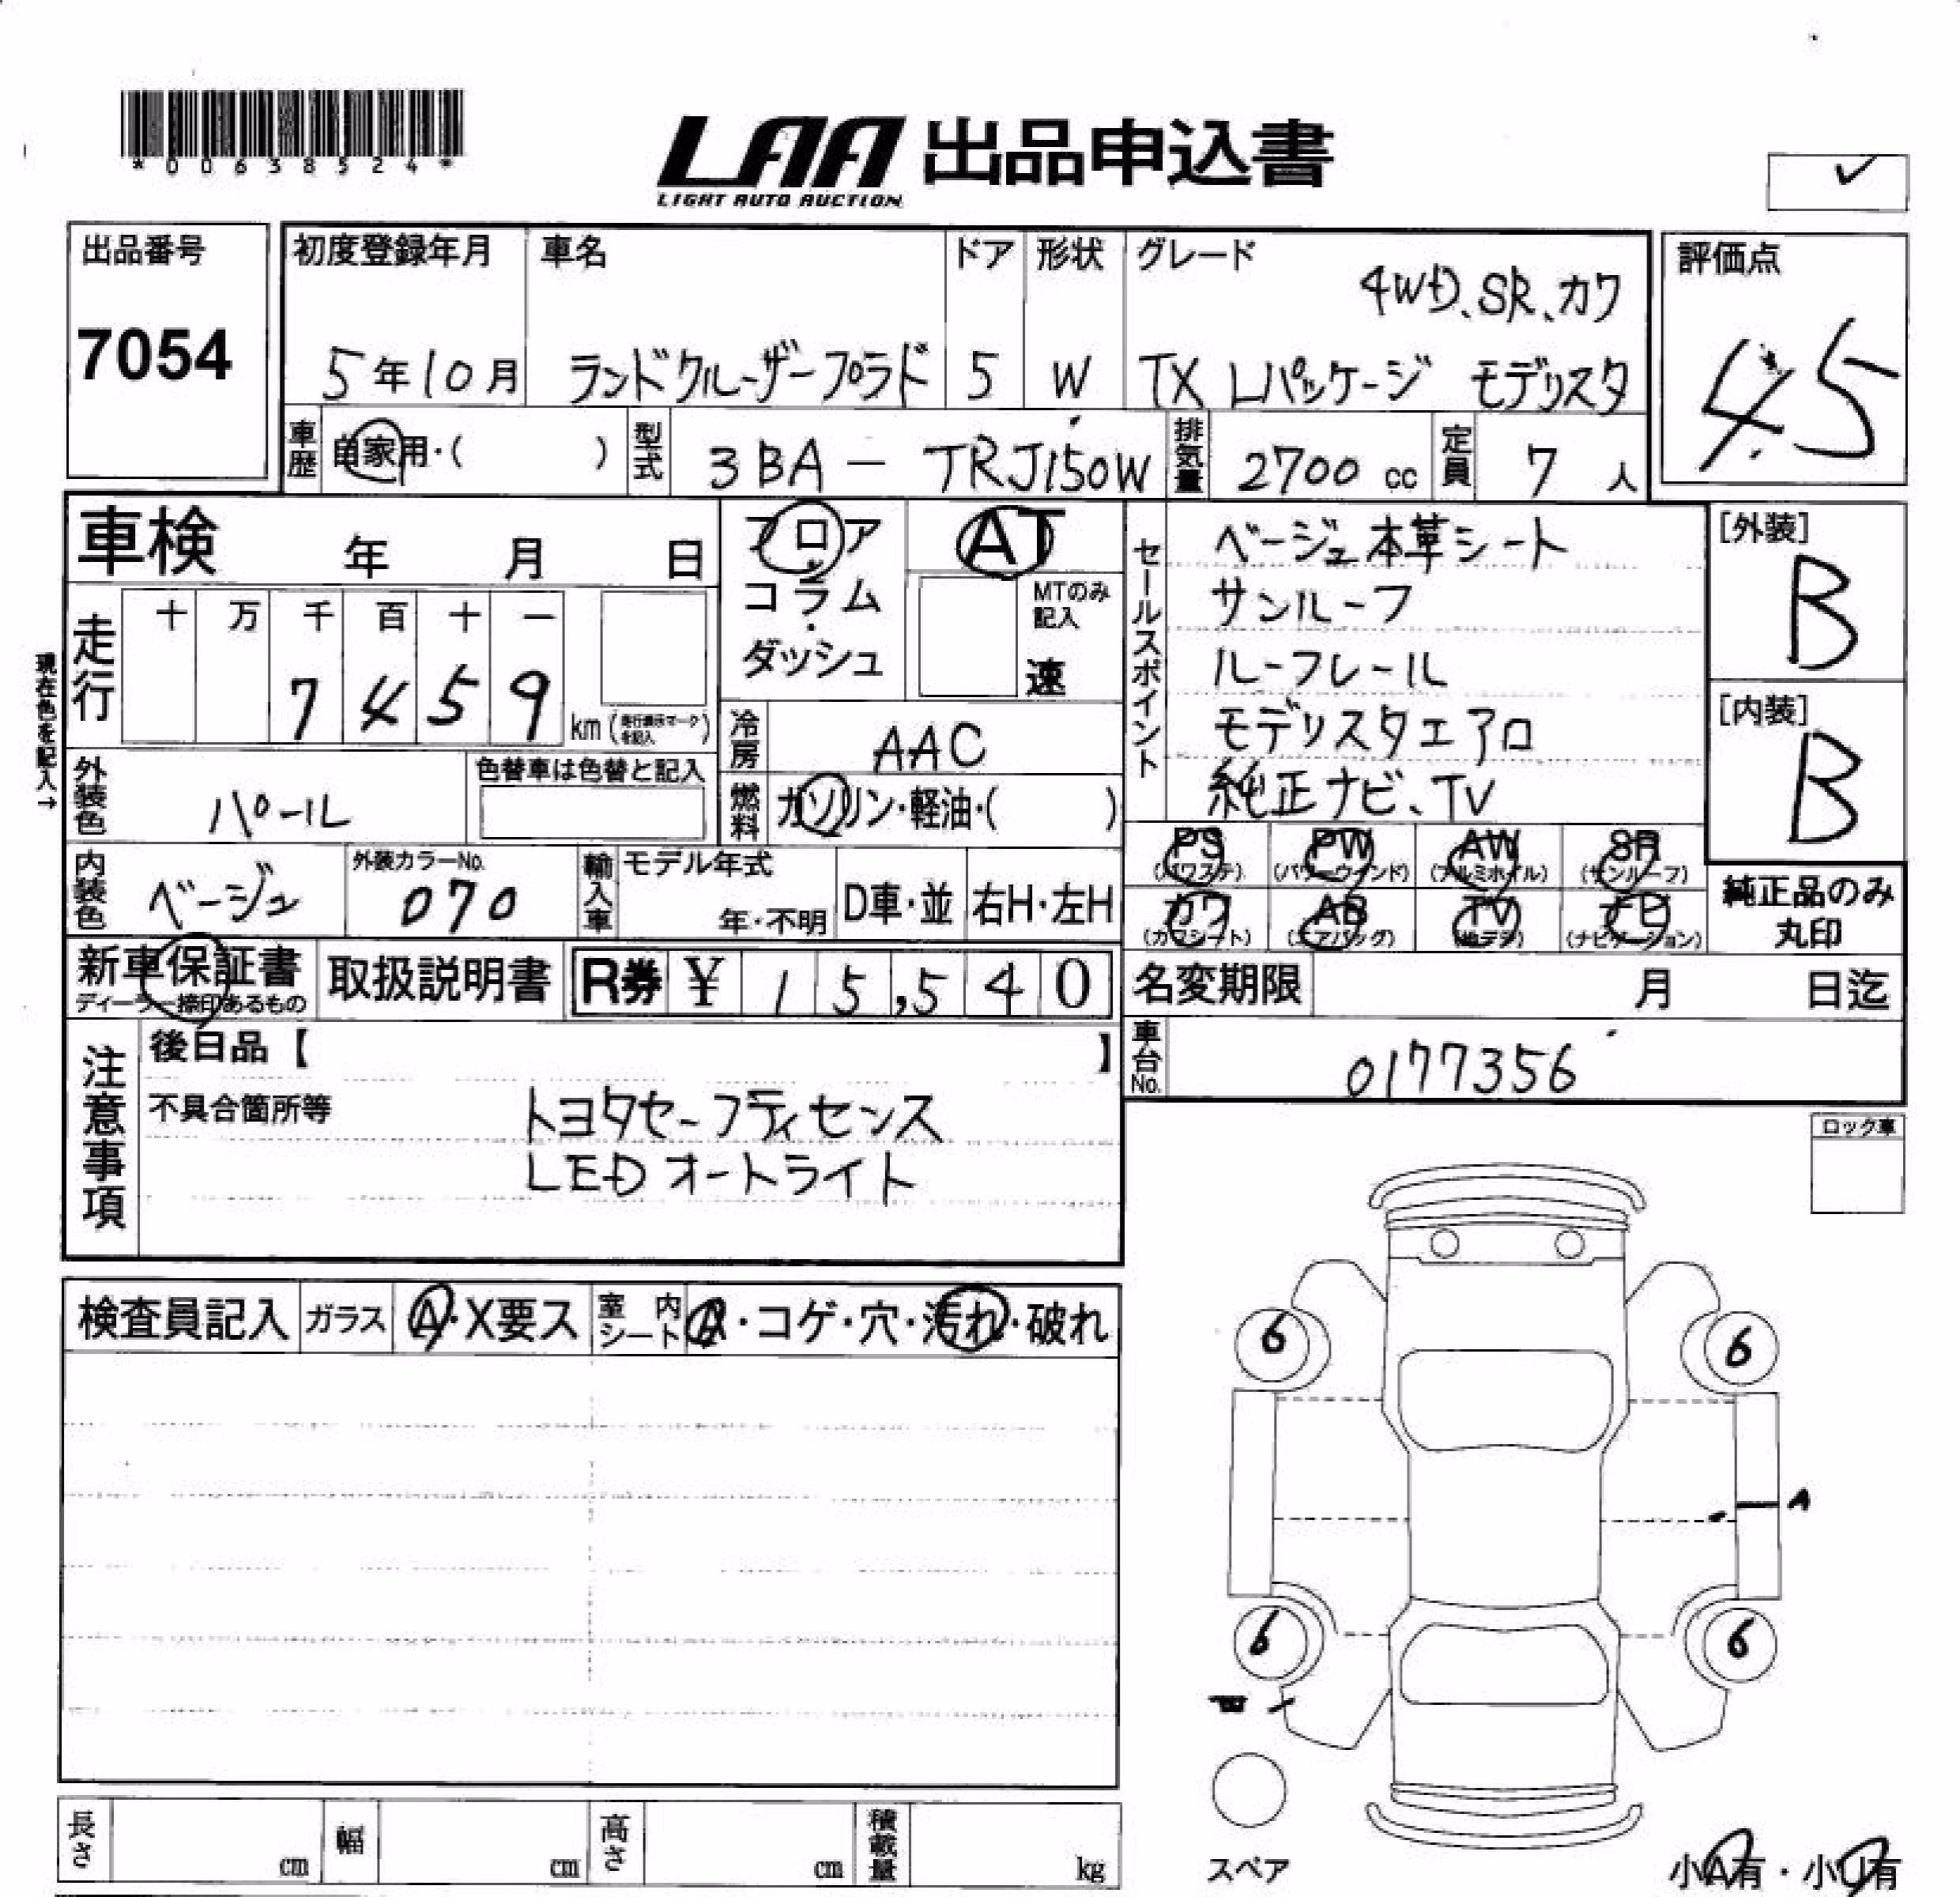 *00638524*
LAA 出品申込書
LIGHT AUTO AUCTION
出品番号
7054
初度登録年月
5年10月
車名
ランドクルーザープラド
ドア
5
形状
W
グレード
4WD、SR、カワ
TX Lパッケージ モデリスタ
評価点
4.5
車歴
自家用・( )
型式
3BA - TRJ150W
排気量
2700 cc
定員
7 人
車検 年 月 日
フロア
コラム
ダッシュ
AT
MTのみ
記入
速
現在色を記入→
走行
十 万 千 百 十 一
7 4 5 9
km (走行表示マークを記入)
冷房
AAC
燃料
ガソリン・軽油・( )
外装色
パール
色替車は色替と記入
内装色
ベージュ
外装カラーNo.
070
輸入車
モデル年式
年・不明
D車・並
右H・左H
セールスポイント
ベージュ本革シート
サンルーフ
ルーフレール
モデリスタエアロ
純正ナビ、TV
[外装]
B
[内装]
B
PS (パワステ)
PW (パワーウィンド)
AW (アルミホイル)
SR (サンルーフ)
カワ (カワシート)
AB (エアバッグ)
TV (地デジ)
ナビ (ナビゲーション)
純正品のみ
丸印
新車保証書
ディーラー捺印あるもの
取扱説明書
R券 ¥ 15,540
名変期限 月 日迄
車台No.
0177356
注意事項
後日品【 】
不具合箇所等
トヨタセーフティセンス
LEDオートライト
ロック車
検査員記入
ガラス
A・X要ス
室内シート
A・コゲ・穴・汚れ・破れ
6
6
A
6
6
スペア
長さ cm
幅 cm
高さ cm
積載量 kg
小A有・小U有